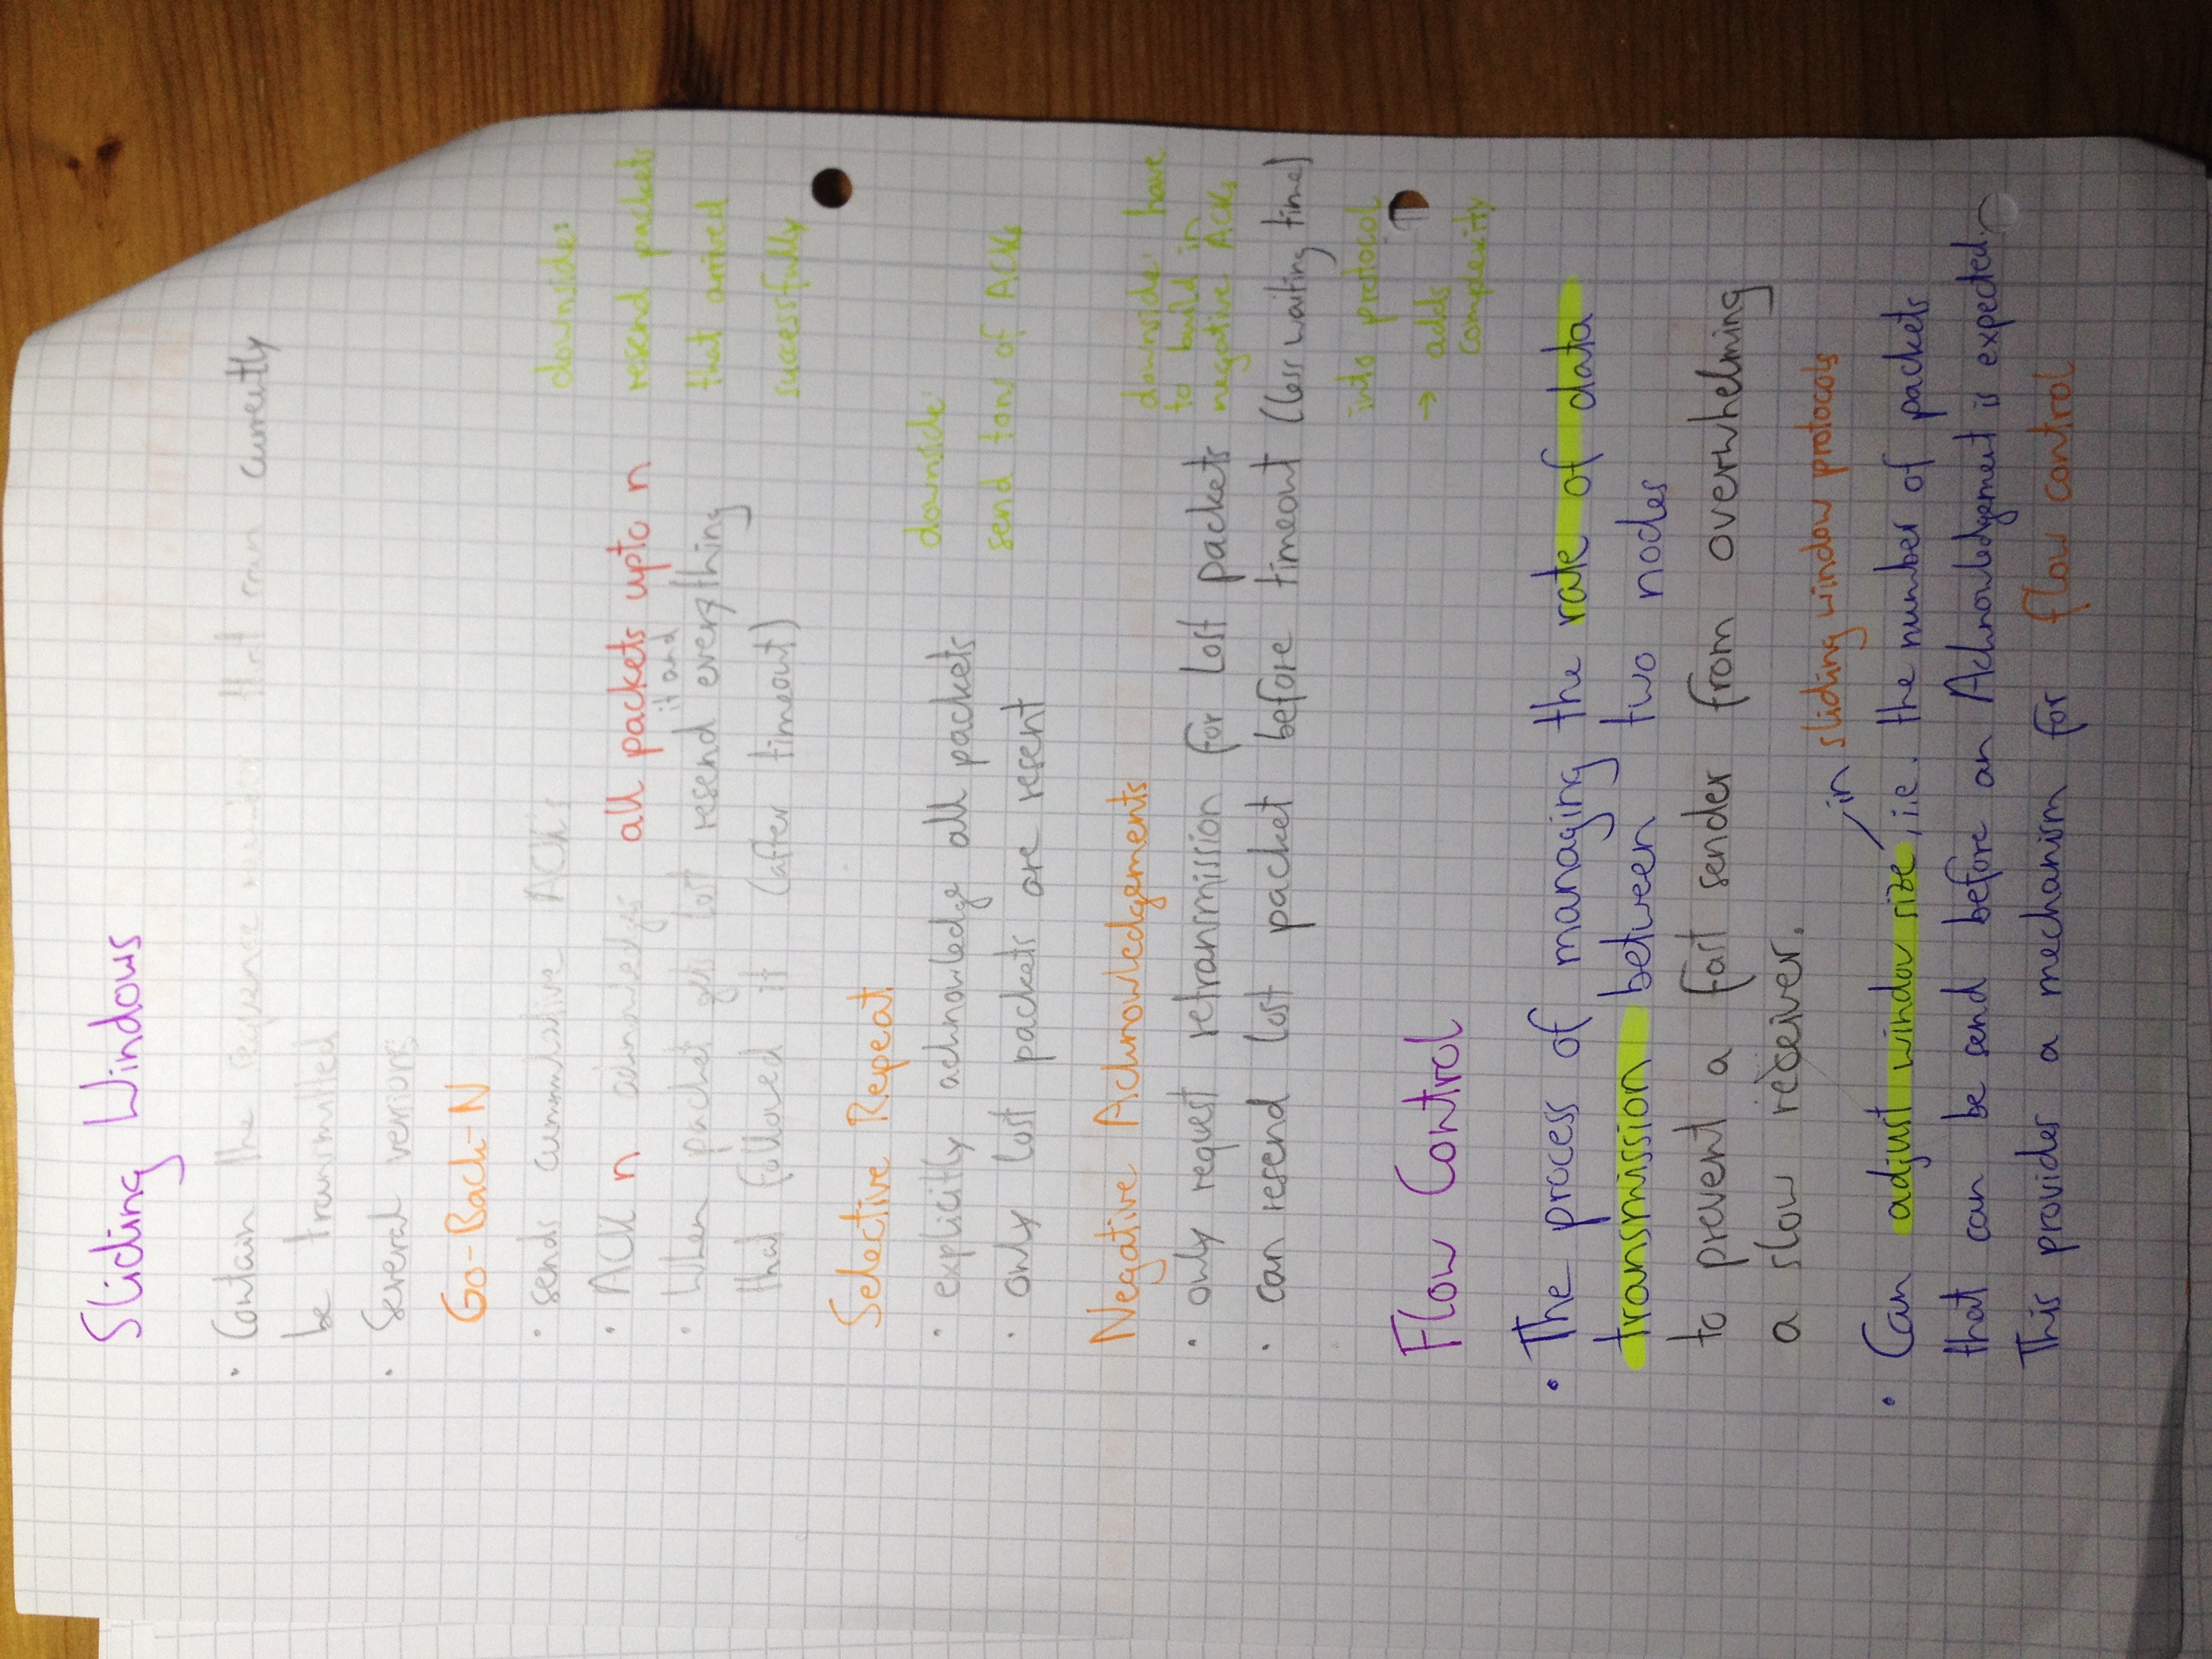 Sliding Windows
· Contain the sequence numbers that can currently
be transmitted
· Several versions:
Go-Back-N
· sends cummulative ACKs
· ACK n acknowledges all packets upto n
· When packet gets lost resend everything
it and
that followed it (after timeout)
downside:
resend packets
that arrived
successfully
Selective Repeat
· explicitly acknowledge all packets
· only lost packets are resent
downside:
send tons of ACKs
Negative Acknowledgements
· only request retransmission for lost packets
· can resend a lost packet before timeout (less waiting time)
downside: have
to build in
negative ACKs
into protocol
→ adds
complexity
Flow Control
· The process of managing the rate of data
transmission between two nodes
to prevent a fast sender from overwhelming
a slow receiver.
in sliding window protocols
· Can adjust window size, i.e. the number of packets
that can be send before an Acknowledgement is expected.
This provides a mechanism for flow control